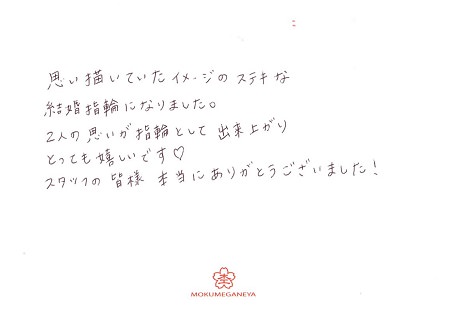 思い描いていたイメージのステキな
結婚指輪になりました。
2人の思いが指輪として出来上がり
とっても嬉しいです♡
スタッフの皆様 本当にありがとうございました!
MOKUMEGANEYA